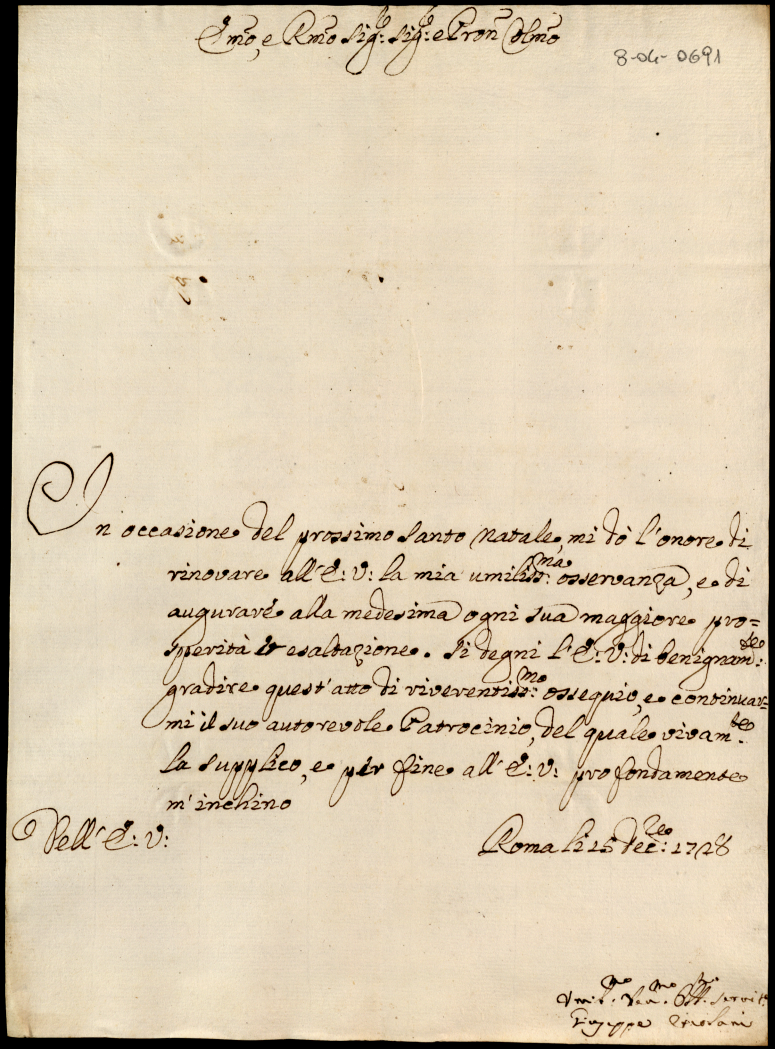 Emo, e Rmo Sig: Sig: e Pron Colmo
8-04-0691
In occasione del prossimo Santo Natale, mi dò l'onore di
rinovare all'E: V: la mia umiliss:ma osservanza, e di
augurare alla medesima ogni sua maggiore pro=
sperità et esaltazione. Si degni l'E: V: di benignam:te
gradire quest'atto di riverentiss:mo ossequio, e continuar=
mi il suo autorevole Patrocinio, del quale vivam:te
la supplico, e per fine all'E: V: profondamente
m'inchino
Dell'E: V:
Roma li 15 Dec:re 1728
Umil.mo Dev.mo Obl.mo Servit.e
Giuseppe